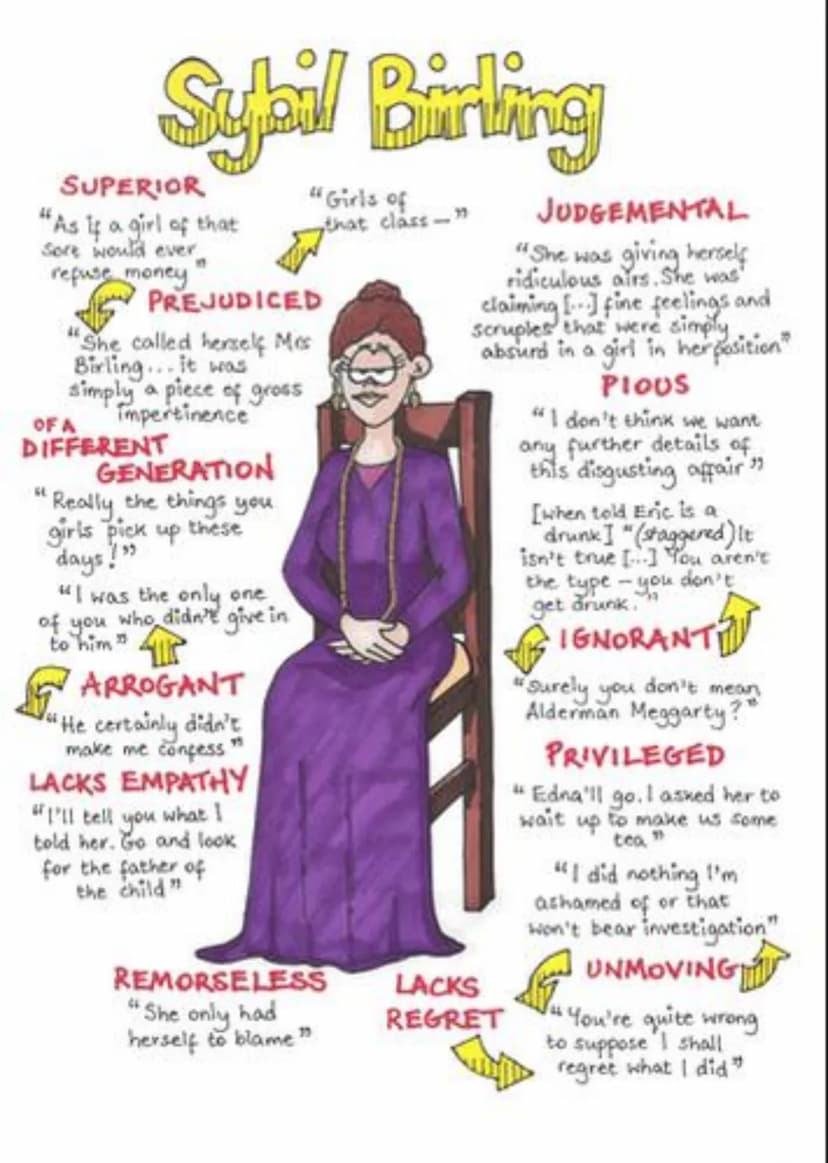 Sybil Birling
SUPERIOR
"As if a girl of that
sort would ever
refuse money"
"Girls of
that class—"
PREJUDICED
"She called herself Mrs
Birling... it was
simply a piece of gross
impertinence
OF A
DIFFERENT
GENERATION
"Really the things you
girls pick up these
days!"
"I was the only one
of you who didn't give in
to him"
ARROGANT
"He certainly didn't
make me confess"
LACKS EMPATHY
"I'll tell you what I
told her. Go and look
for the father of
the child"
REMORSELESS
"She only had
herself to blame"
LACKS
REGRET
JUDGEMENTAL
"She was giving herself
ridiculous airs. She was
claiming [...] fine feelings and
scruples that were simply
absurd in a girl in her position"
PIOUS
"I don't think we want
any further details of
this disgusting affair"
[when told Eric is a
drunk] "(staggered) It
isn't true [...] You aren't
the type – you don't
get drunk."
IGNORANT
"Surely you don't mean
Alderman Meggarty?"
PRIVILEGED
"Edna'll go. I asked her to
wait up to make us some
tea"
"I did nothing I'm
ashamed of or that
won't bear investigation"
UNMOVING
"You're quite wrong
to suppose I shall
regret what I did"